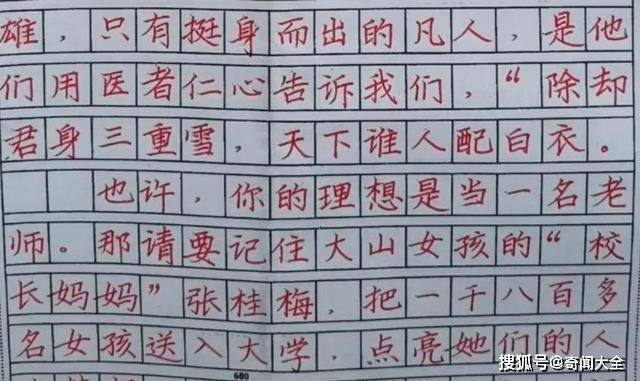 雄，只有挺身而出的凡人，是他
们用医者仁心告诉我们，“除却
君身三重雪，天下谁人配白衣。
也许，你的理想是当一名老
师。那请要记住大山女孩的“校
长妈妈”张桂梅，把一千八百多
名女孩送入大学，点亮她们的人
600
搜狐号@奇闻大全